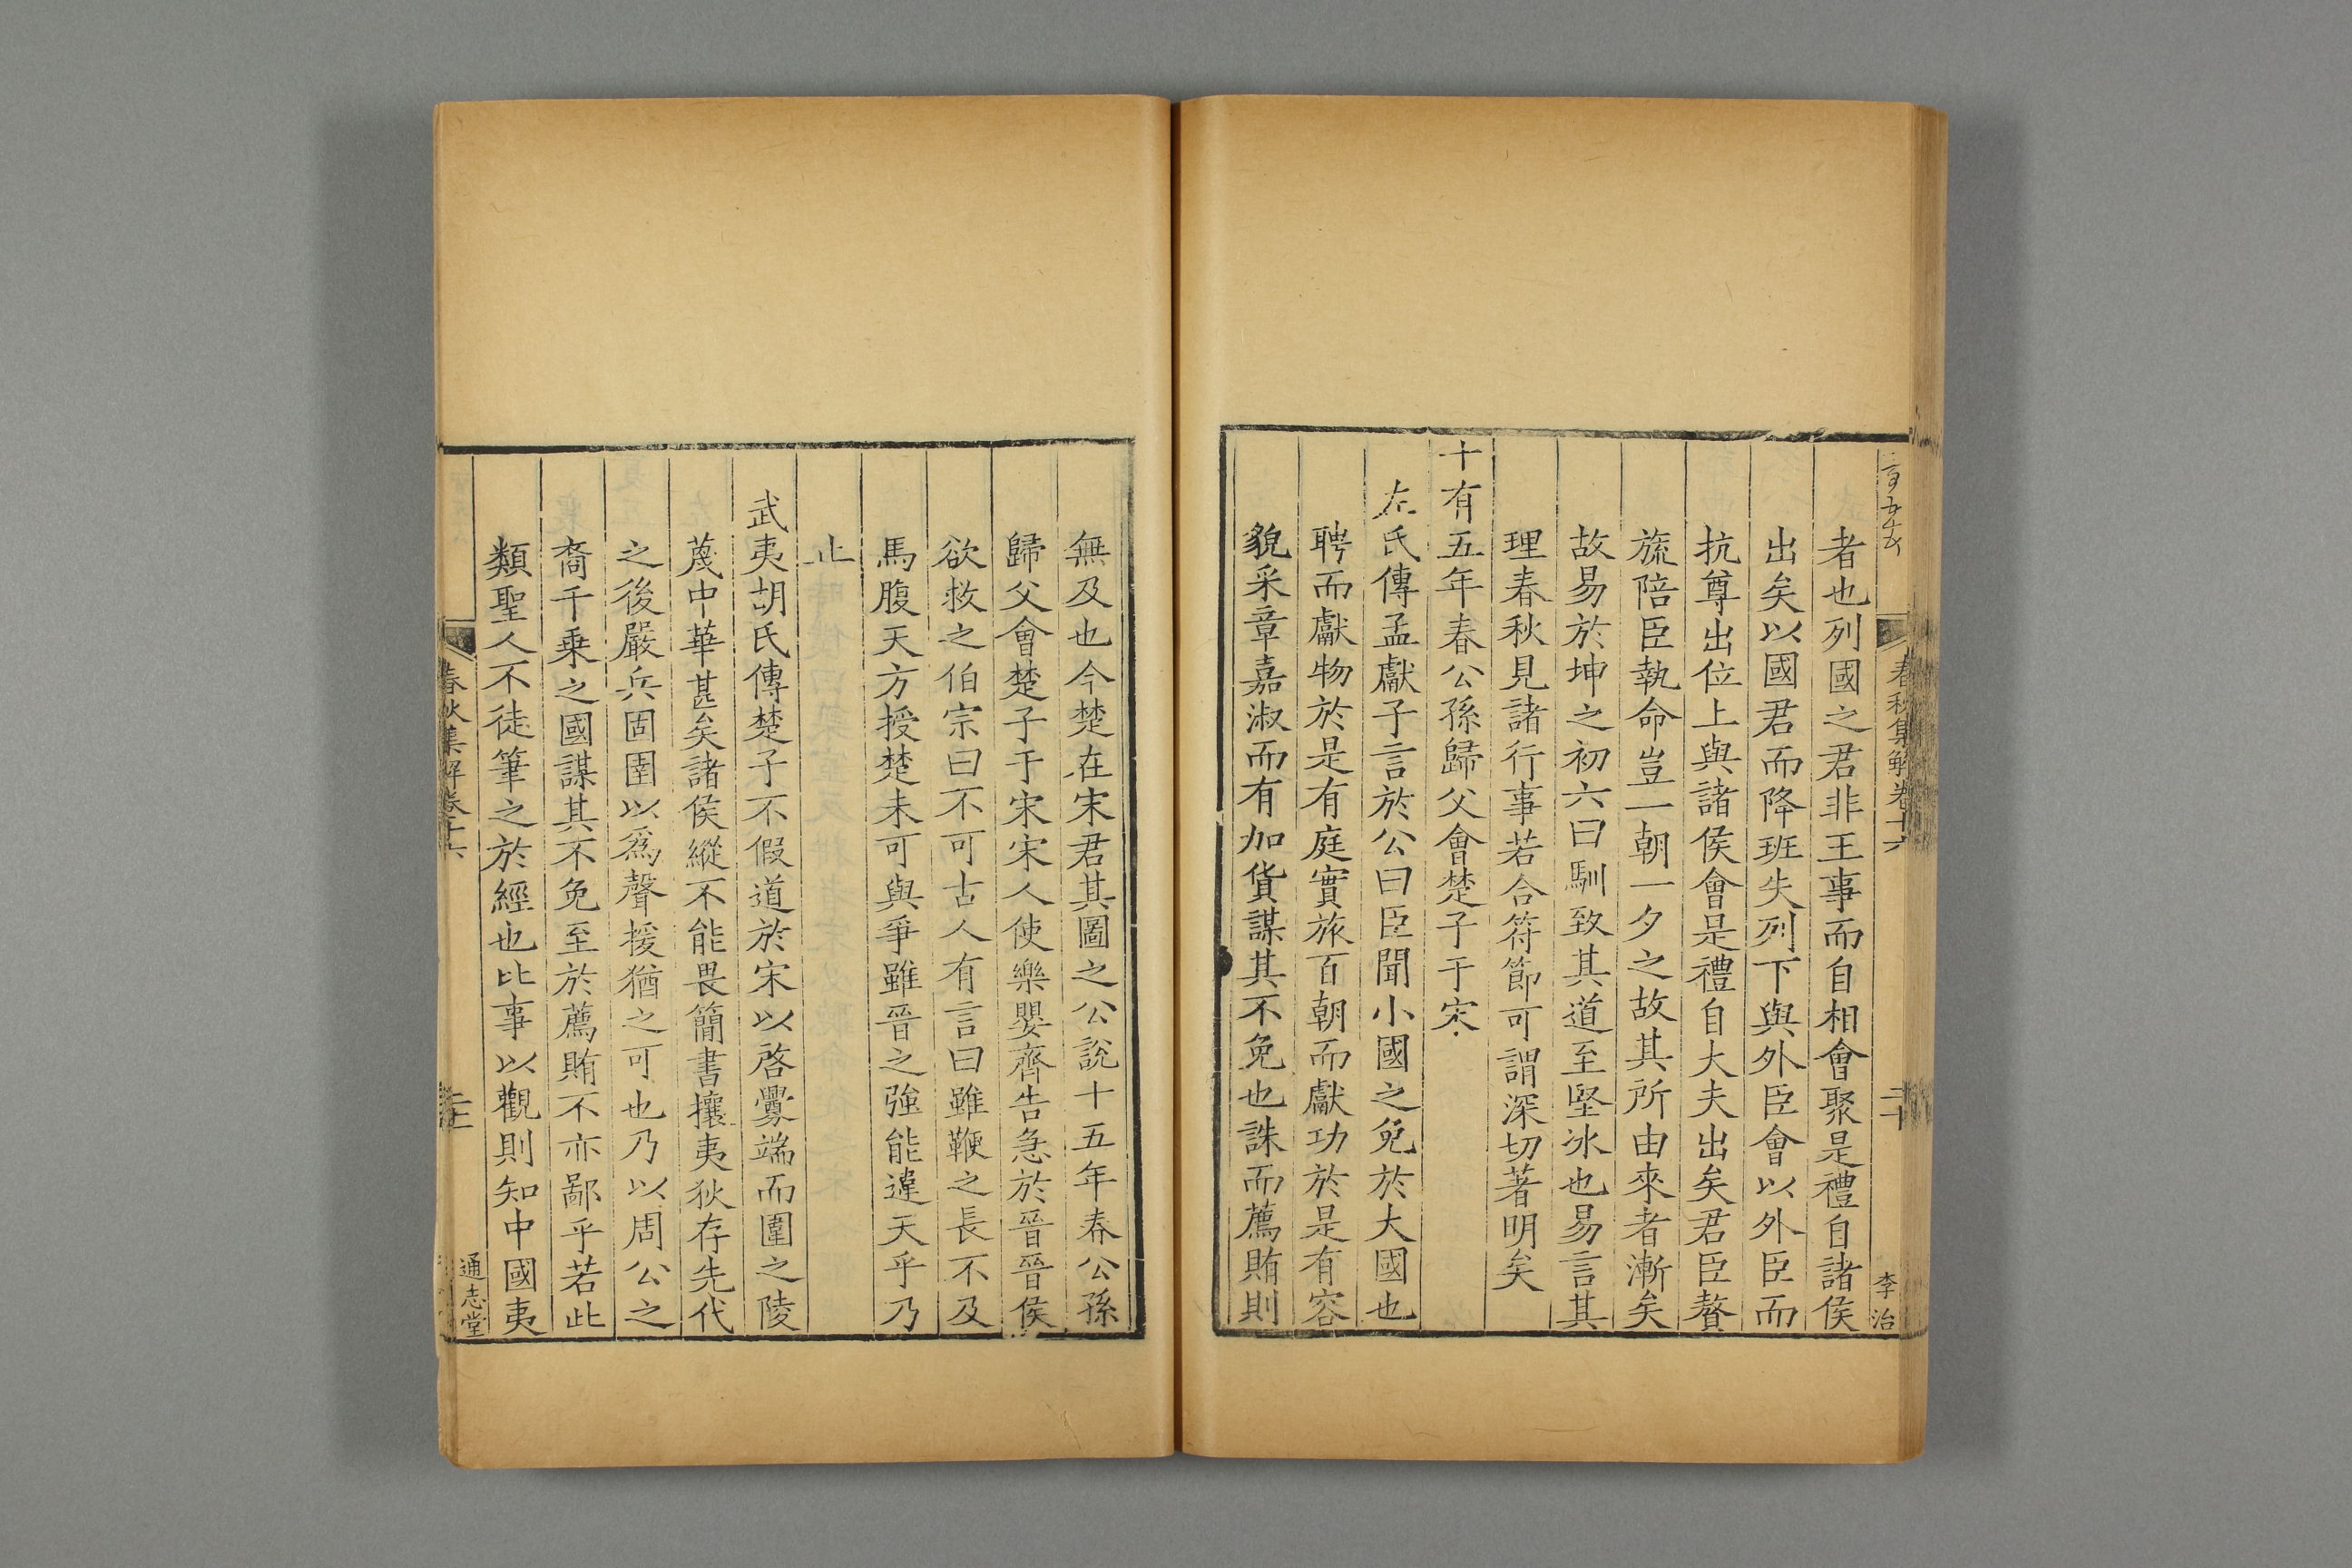 春秋集解卷十六
二十
李治
者也列國之君非王事而自相會聚是禮自諸侯
出矣以國君而降班失列下與外臣會以外臣而
抗尊出位上與諸侯會是禮自大夫出矣君臣贅
旒陪臣執命豈一朝一夕之故其所由來者漸矣
故易於坤之初六曰馴致其道至堅冰也易言其
理春秋見諸行事若合符節可謂深切著明矣
十有五年春公孫歸父會楚子于宋
左氏傳孟獻子言於公曰臣聞小國之免於大國也
聘而獻物於是有庭實旅百朝而獻功於是有容
貌采章嘉淑而有加貨謀其不免也誅而薦賄則
無及也今楚在宋君其圖之公說十五年春公孫
歸父會楚子于宋宋人使樂嬰齊告急於晉晉侯
欲救之伯宗曰不可古人有言曰雖鞭之長不及
馬腹天方授楚未可與爭雖晉之強能違天乎乃
止
武夷胡氏傳楚子不假道於宋以啓釁端而圍之陵
蔑中華甚矣諸侯縱不能畏簡書攘夷狄存先代
之後嚴兵固圉以爲聲援猶之可也乃以周公之
裔千乘之國謀其不免至於薦賄不亦鄙乎若此
類聖人不徒筆之於經也比事以觀則知中國夷
春秋集解卷十六
通志堂